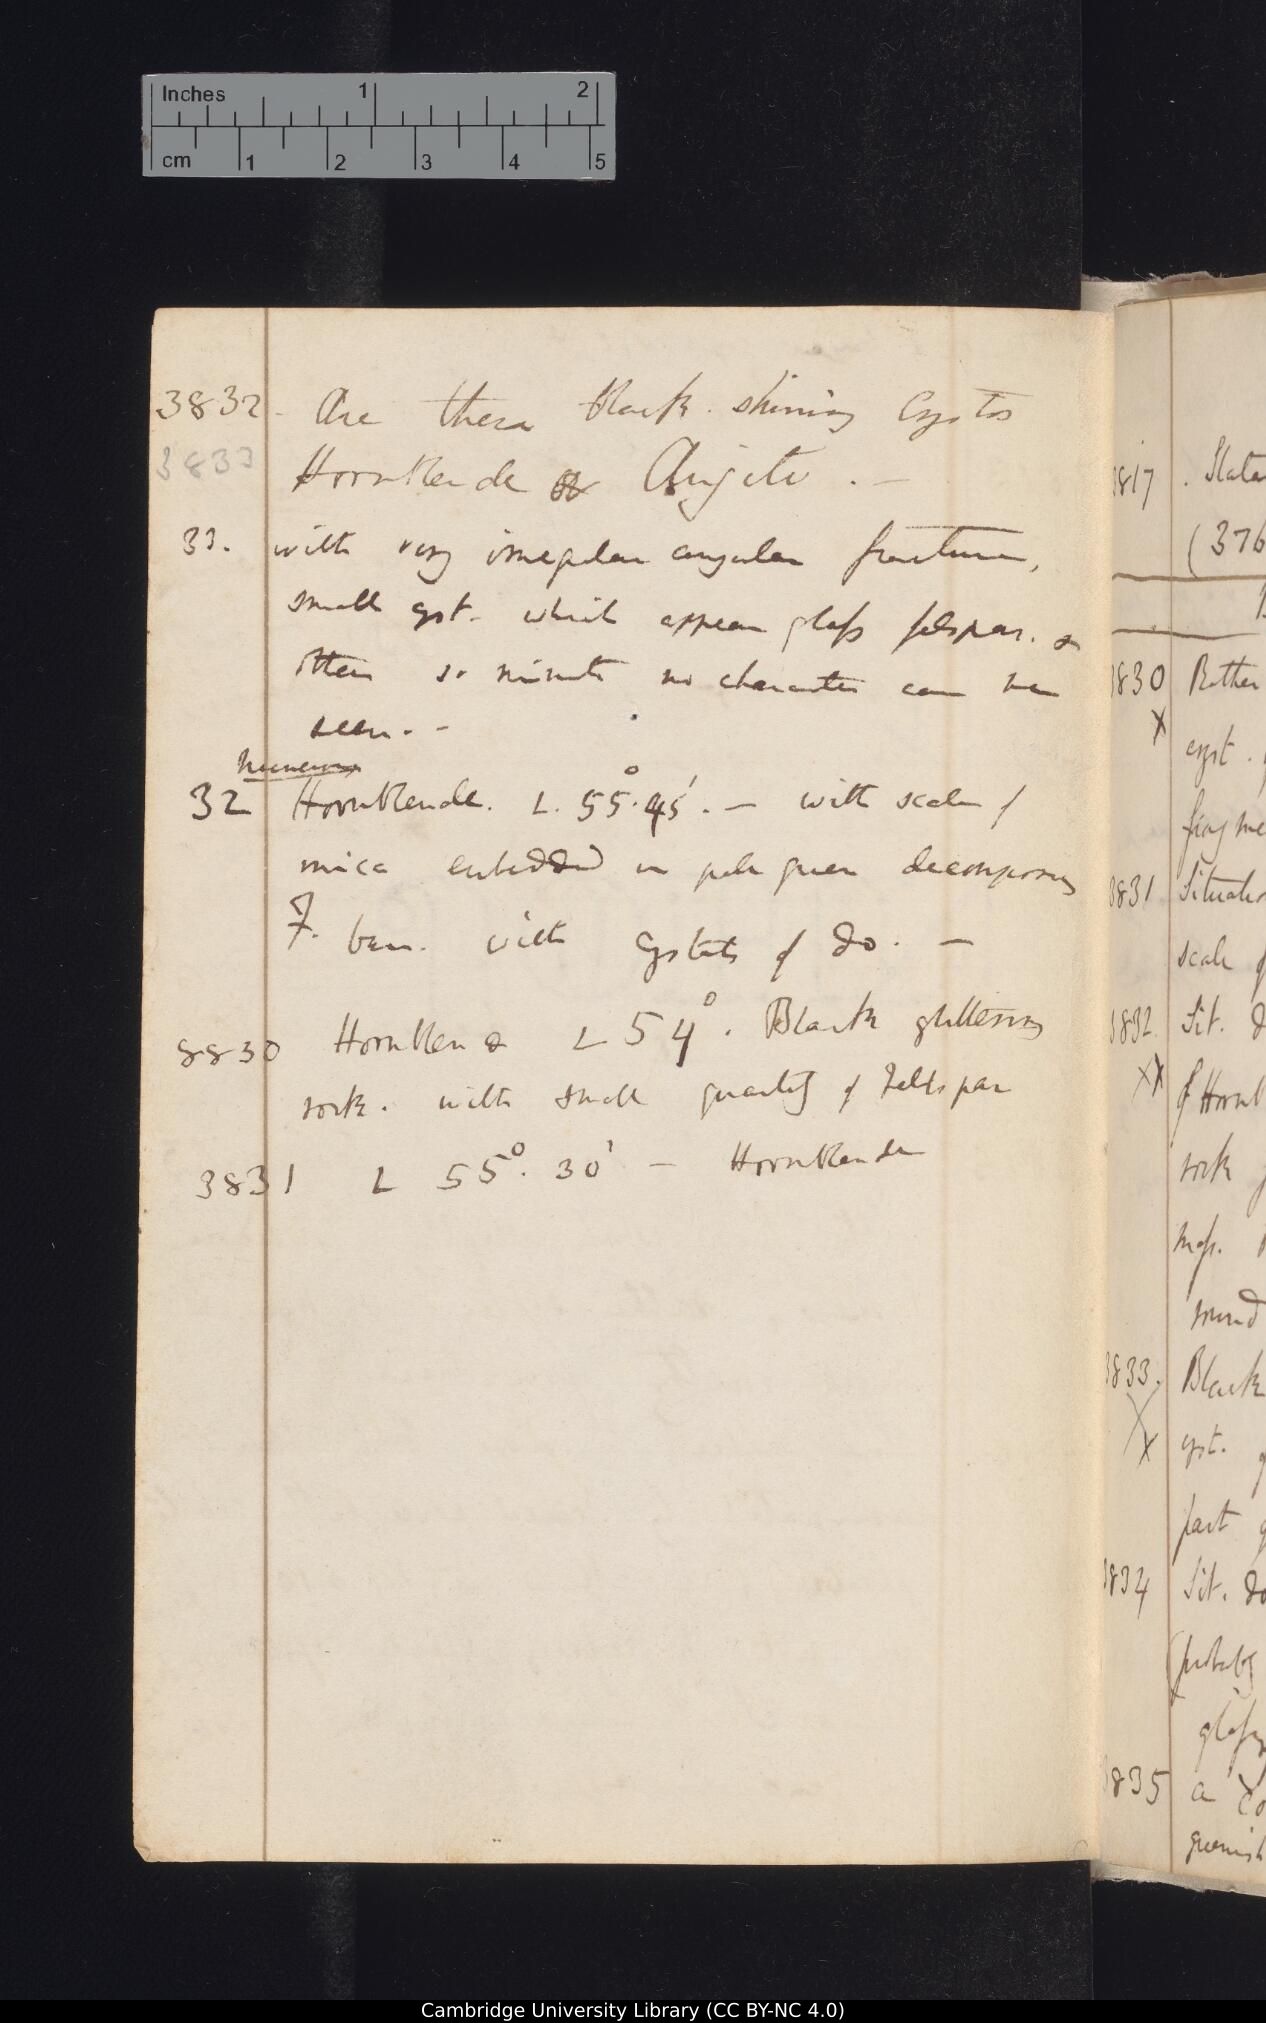 Inches 1 2
cm 1 2 3 4 5
3832 - Are these black shining Crysts
3833 Hornblende or Augite. —
33. with very irregular angular fracture,
small cryst. which appear glassy felspar. &
others so minute no character can be
seen. -
numerous
32 Hornblende. L. 55°.45'. — with scales of
mica embedded in pale green decomposing
F. base. with Crystals of do. —
8830 Hornblende L 54°. Black glittering
rock. with small quantity of Feldspar
3831 L 55°. 30' — Hornblende
817 . Slate
(376
830 Rather
x cryst.
fragme
831 Situation
scale of
832. Sit. d
xx of Hornb
rock
mass.
round
833. Black
x cryst.
part
834 Sit. do
(probably
glassy
835 a Co
greenish
Cambridge University Library (CC BY-NC 4.0)